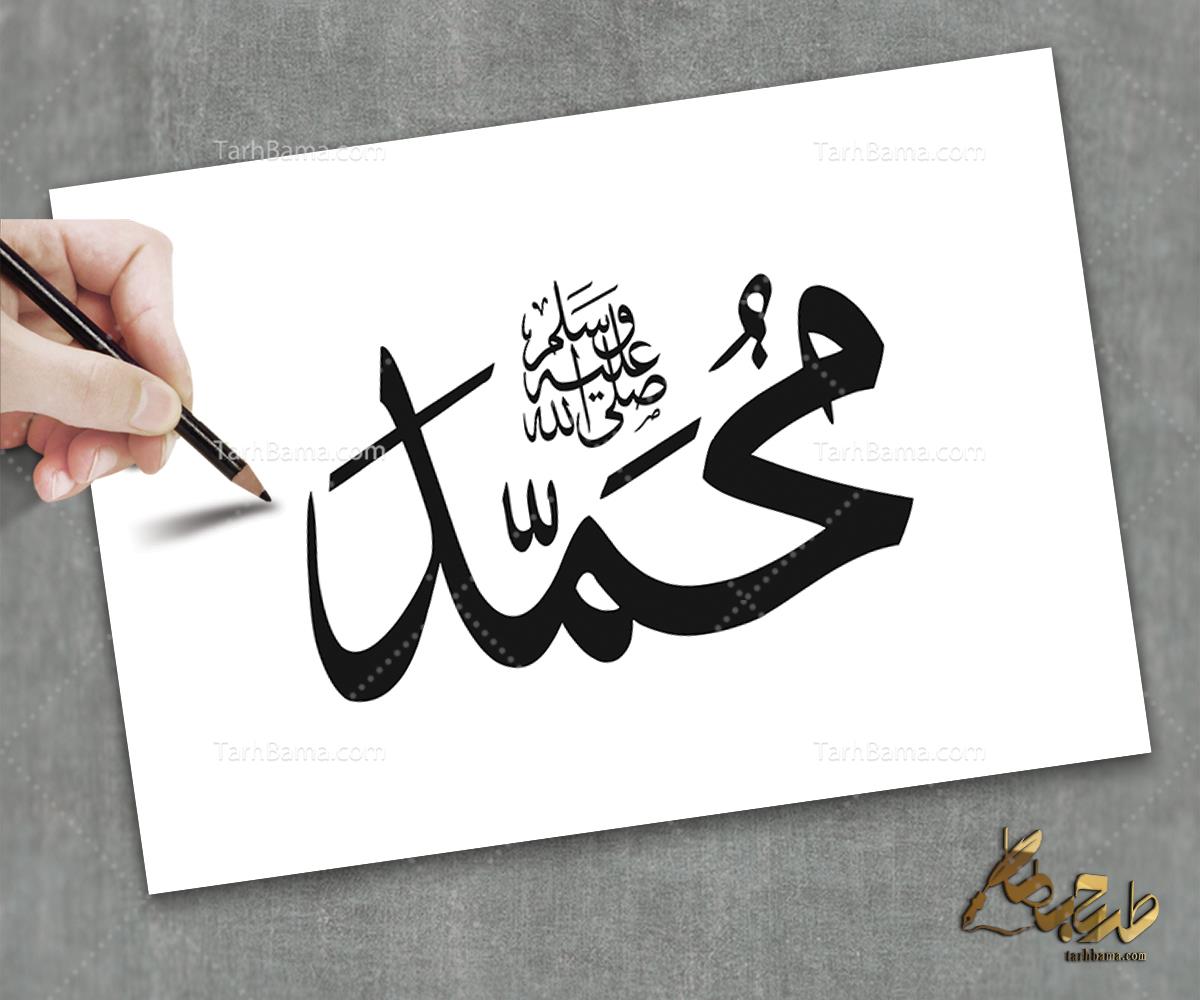 TarhBama.com TarhBama.com
صلى الله
عليه
وسلم
مُحَمَّد
TarhBama.com TarhBama.com
TarhBama.com TarhBama.com
طرح باما
tarhbama.com